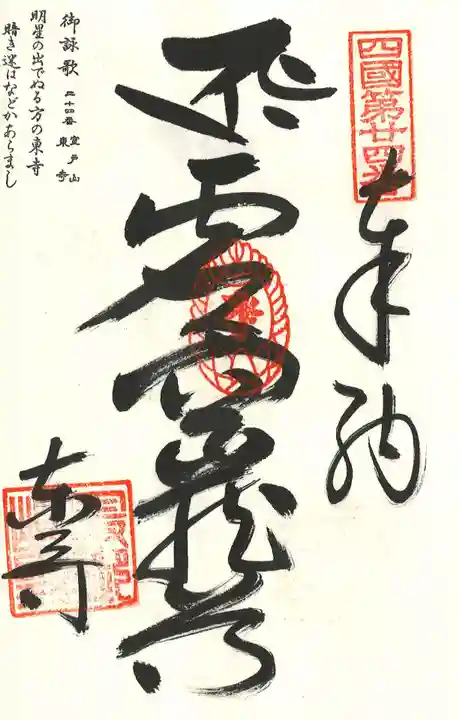 四國第廿四番
奉納
虚空蔵
東寺
御詠歌 二十四番 室戸山 東寺
明星の出でぬる方の東寺
暗き迷はなどかあらまし